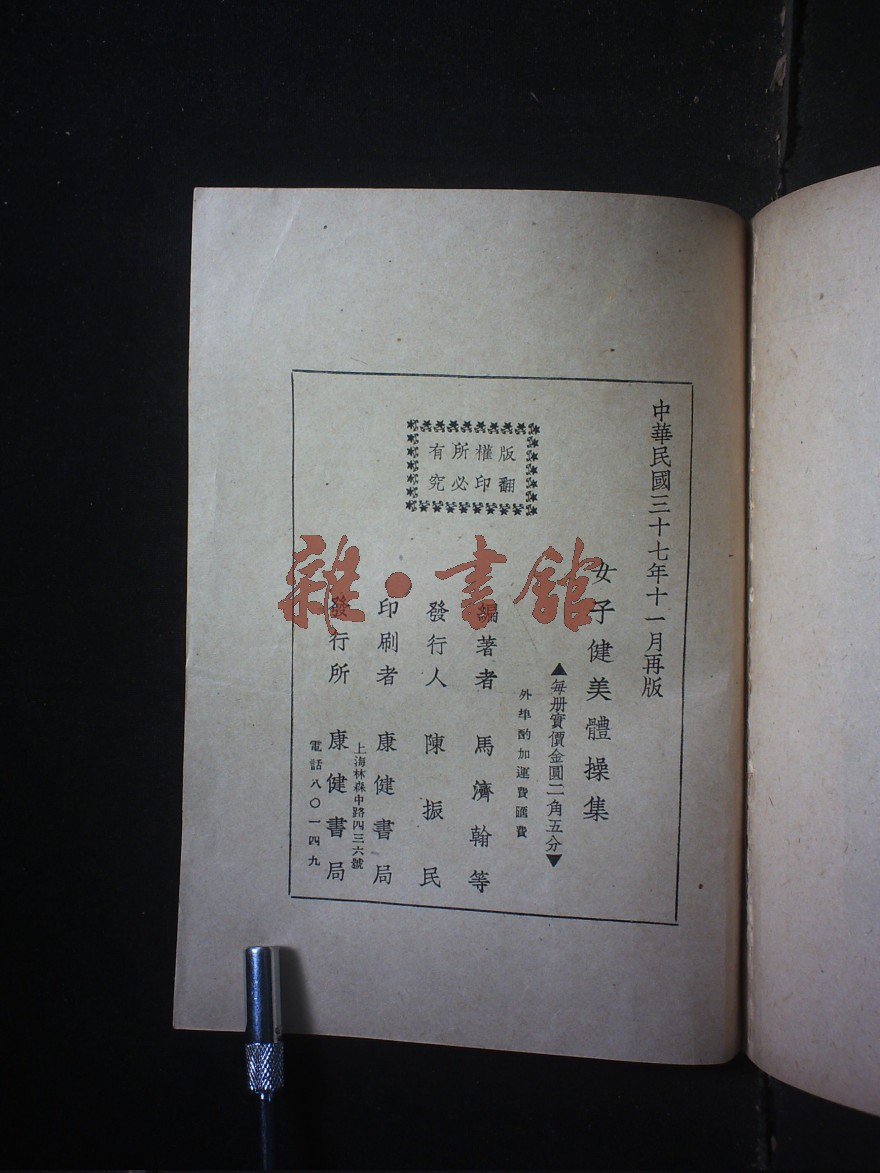 中華民國三十七年十一月再版
女子健美體操集
▲每册實價金圓二角五分▼
外埠酌加運費匯費
編著者 馬濟翰等
發行人 陳振民
印刷者 康健書局
上海林森中路四三六號
發行所 康健書局
電話八〇一四九
版權所有
翻印必究
雜·書館